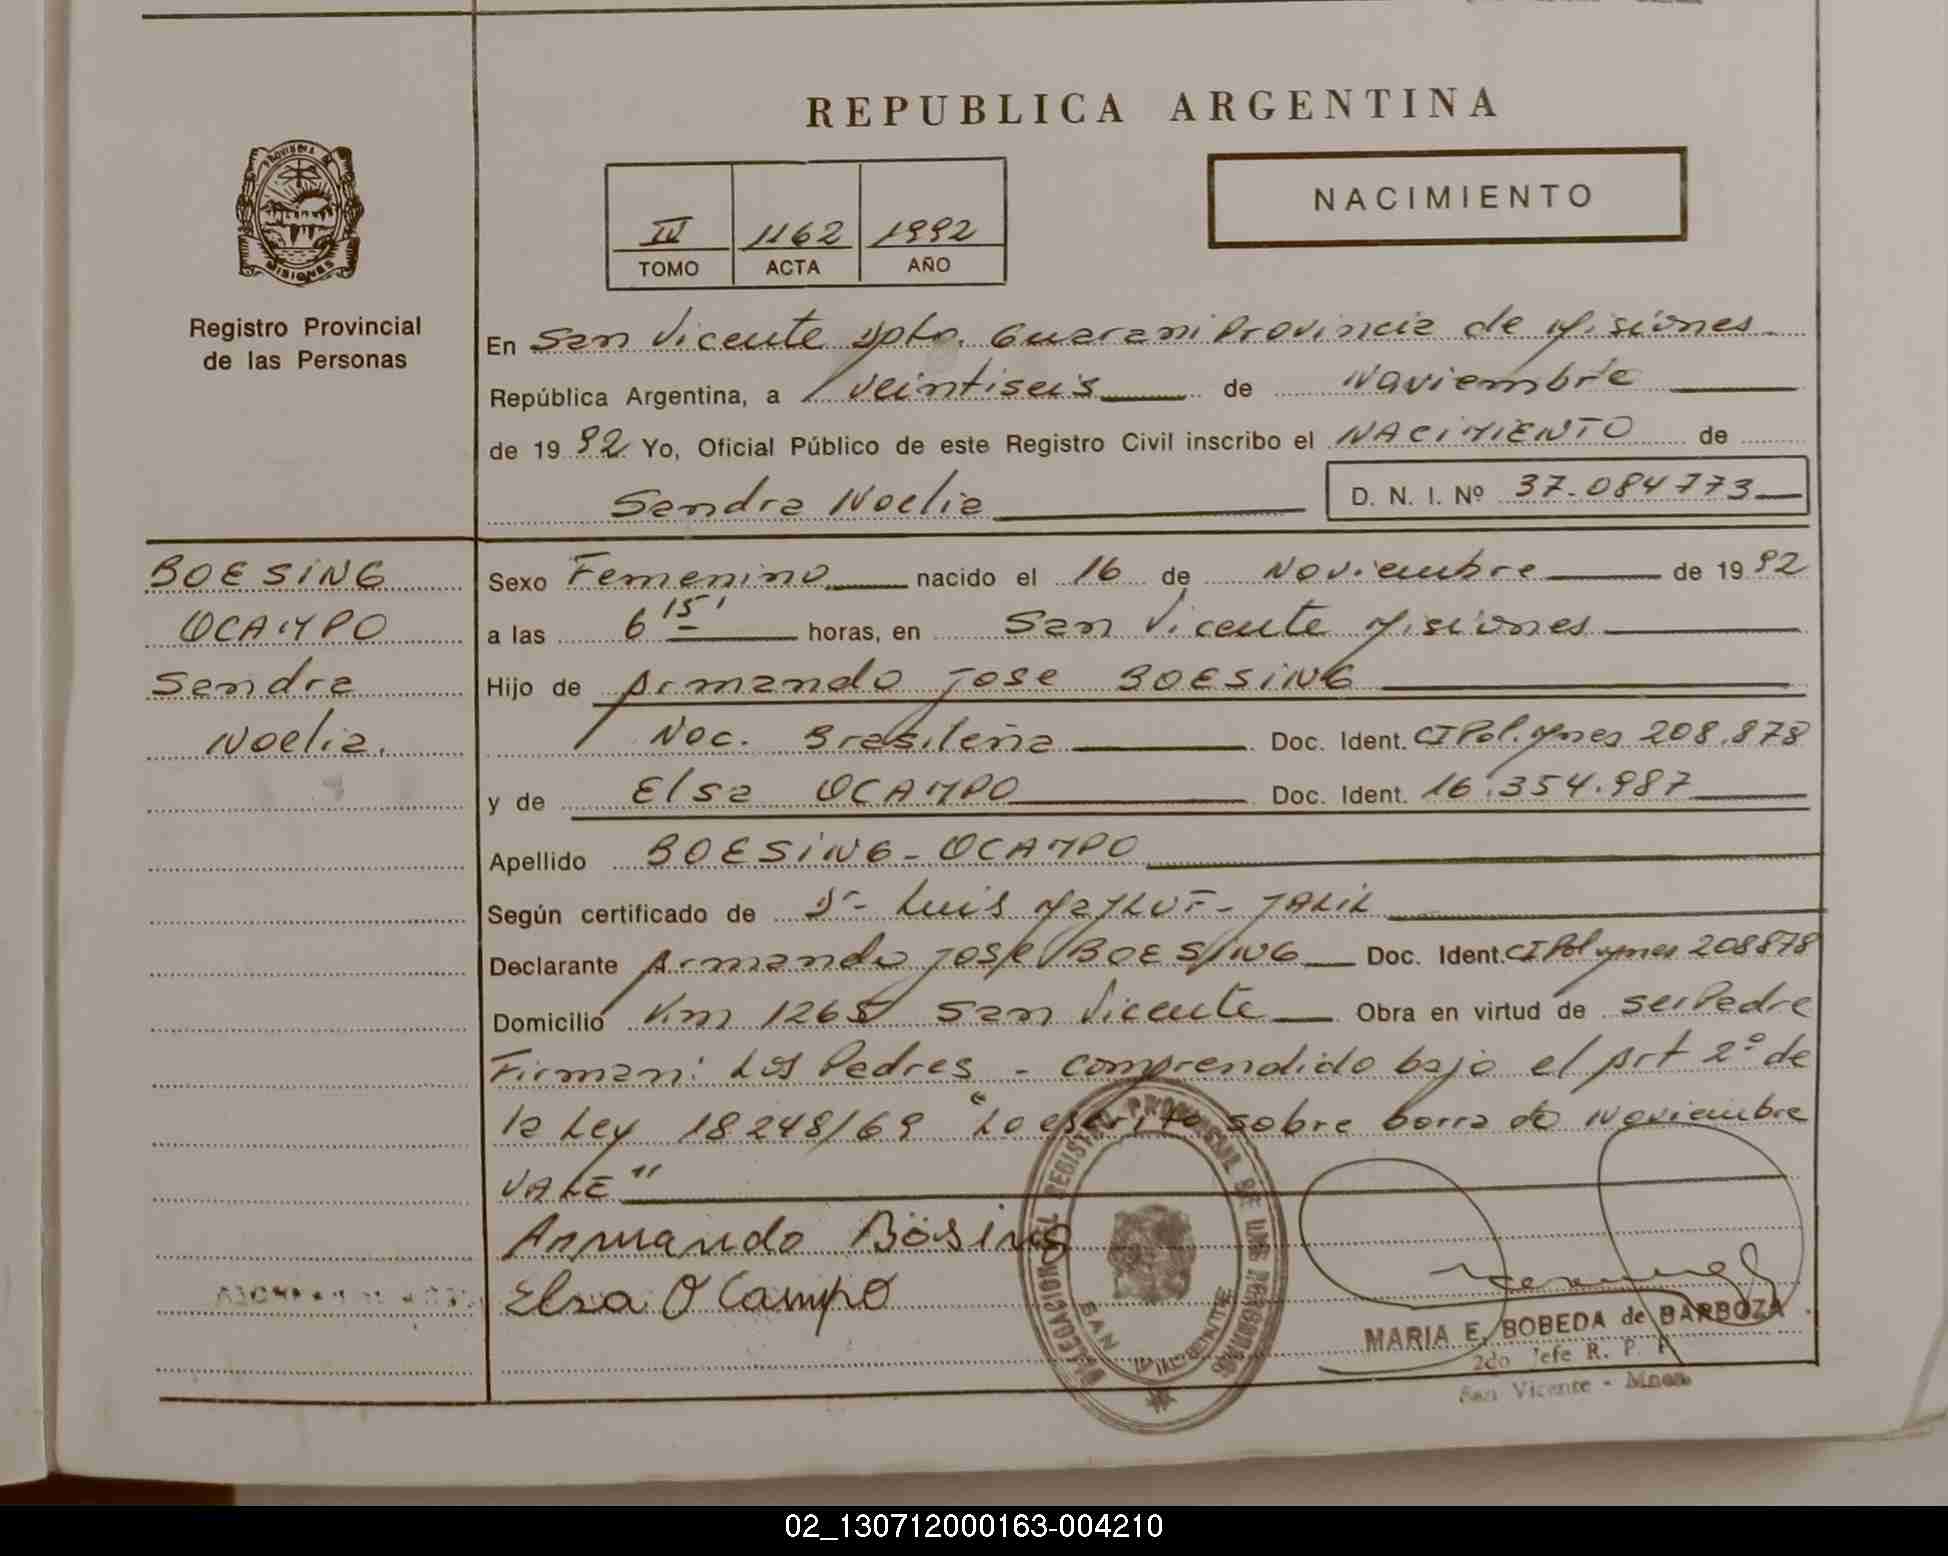 REPUBLICA ARGENTINA
NACIMIENTO
IV 1162 1992
TOMO ACTA AÑO
PROVINCIA DE MISIONES
Registro Provincial
de las Personas
En San Vicente Dpto. Guarani Provincia de Misiones
República Argentina, a Veintiseis de Noviembre
de 1992 Yo, Oficial Público de este Registro Civil inscribo el NACIMIENTO de
Sandra Noelia D. N. I. Nº 37.084773
BOESING
OCAMPO
Sandra
Noelia.
Sexo Femenino nacido el 16 de Noviembre de 1992
a las 6 15' horas, en San Vicente Misiones
Hijo de Armando Jose BOESING
Nac. Brasileña Doc. Ident. CI Pol. Mnes 208.878
y de Elsa OCAMPO Doc. Ident. 16.354.987
Apellido BOESING - OCAMPO
Según certificado de Dr. Luis JALIL
Declarante Armando Jose BOESING Doc. Ident. CI Pol Mnes 208878
Domicilio Km 1265 San Vicente Obra en virtud de ser Padre
Firman: Los Padres - comprendido bajo el Art 2º de
la Ley 18248/69 "Lo escrito sobre borrado Noviembre
VALE"
Armando Bösing
Elsa OCampo
DELEGACION DEL REGISTRO PROVINCIAL DE LAS PERSONAS
SAN VICENTE
MARIA E. BOBEDA de BARBOZA
2do Jefe R. P. P.
San Vicente - Mnes.
02_130712000163-004210